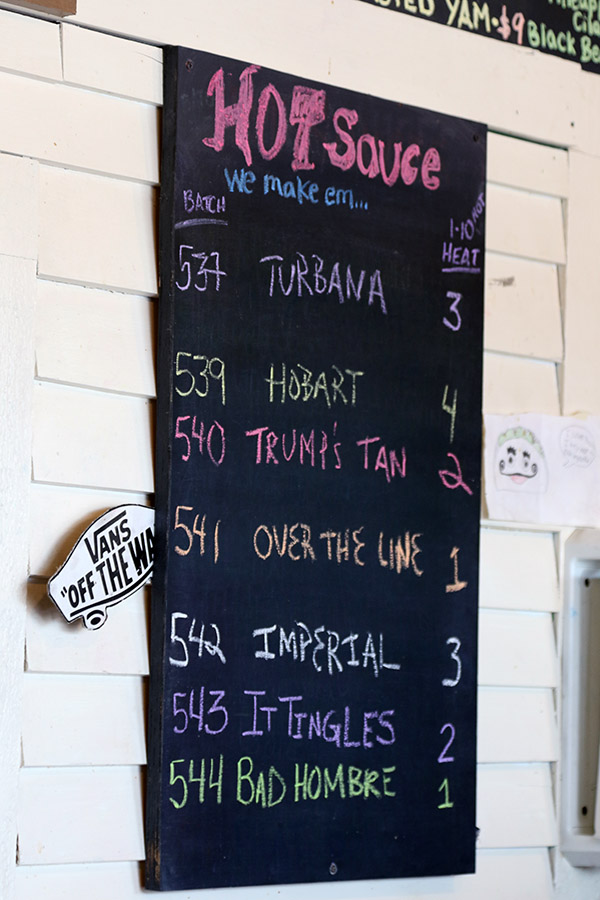 STED YAM-$9
Black Be
HOT Sauce
we make em...
BATCH
1-10 HOT
HEAT
537 TURBANA 3
539 HOBART 4
540 TRUMP'S TAN 2
541 OVER THE LINE 1
542 IMPERIAL 3
543 IT TINGLES 2
544 BAD HOMBRE 1
VANS
"OFF THE WA